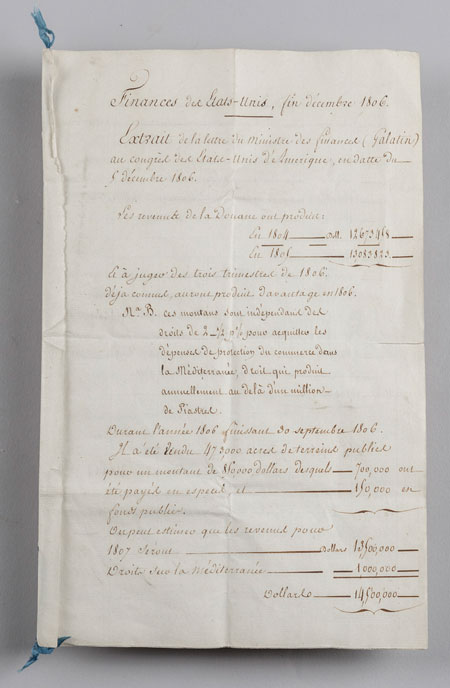 Finances des Etats-Unis, fin décembre 1806.
Extrait de la lettre du ministre des finances (Galatin)
au congrès des Etats-Unis d'Amerique, en datte du
5 décembre 1806.
Les revenus de la Douane ont produit:
En 1804 — Doll. 12673468 —
En 1805 — 13083823 —
et à juger des trois trimestres de 1806.
déja connus, auront produit davantage en 1806.
Na. B. ces montans sont independans des
droits de 2 ½ p% pour acquitter les
dépenses de protection du commerce dans
la Méditerranée, droit qui produit
annuellement au delà d'une million
de Piastres.
Durant l'année 1806 finissant 30 septembre 1806.
Il a été vendu 473000 acres de terreins publics
pour un montant de 850000 dollars desquels — 700,000 ont
été payés en especes, et — 150,000 en
fonds publics.
On peut estimer que les revenus pour
1807 seront — Dollars 13,500,000 —
Droits sur la Méditerranée — 1 000,000 —
Dollars — 14,500,000 —